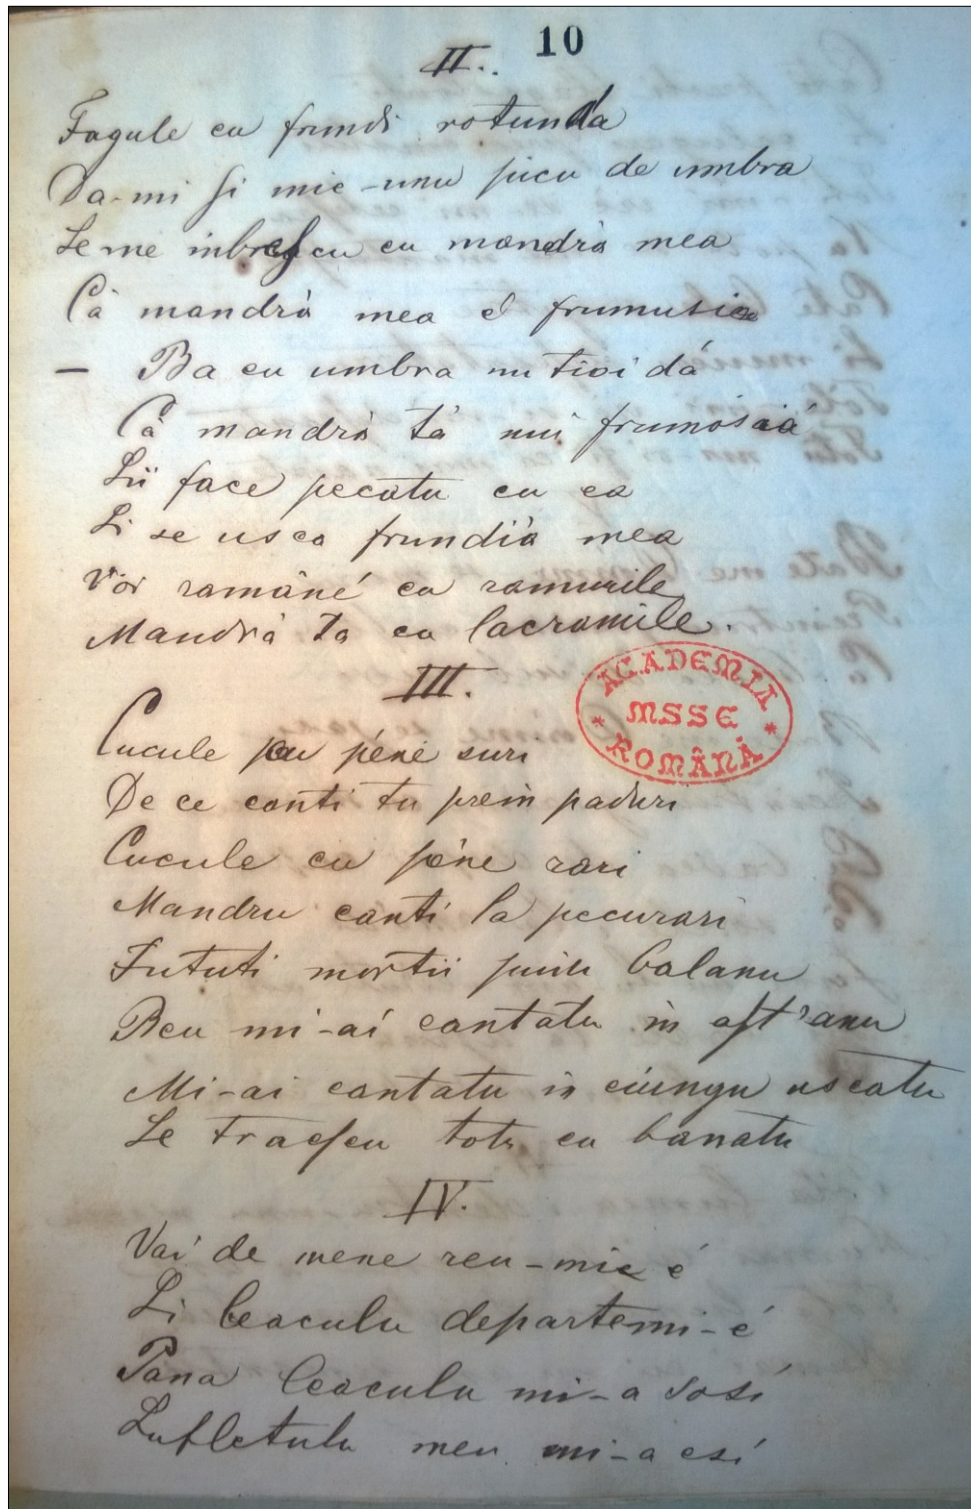 10
II.
Fagule cu frundi rotunda
Da-mi si mie-unu picu de umbra
Se me inbrescu cu mandrà mea
Cà mandrà mea é frumusia
— Ba eu umbra nu tioi dá
Cà mandrà tà nui frumósaá
Sii face pecatu cu ea
Si se usca frundià mea
Vor romăné cu ramurile
Mandrà ta cu lacramile.
III.
ACADEMIA
MSSE
ROMÂNĂ
Cucule cu péne suri
De ce canti tu prein paduri
Cucule cu péne rari
Mandru canti la pecurari
Fututi mortii puiu balanu
Reu mi-ai cantatu in ast'anu
Mi-ai cantatu in ciungu uscatu
Se traescu totu cu banatu
IV.
Vai de mene reu-mie é
Si leaculu departemi-é
Pana leaculu mi-a sosí
Sufletulu meu mi-a esí